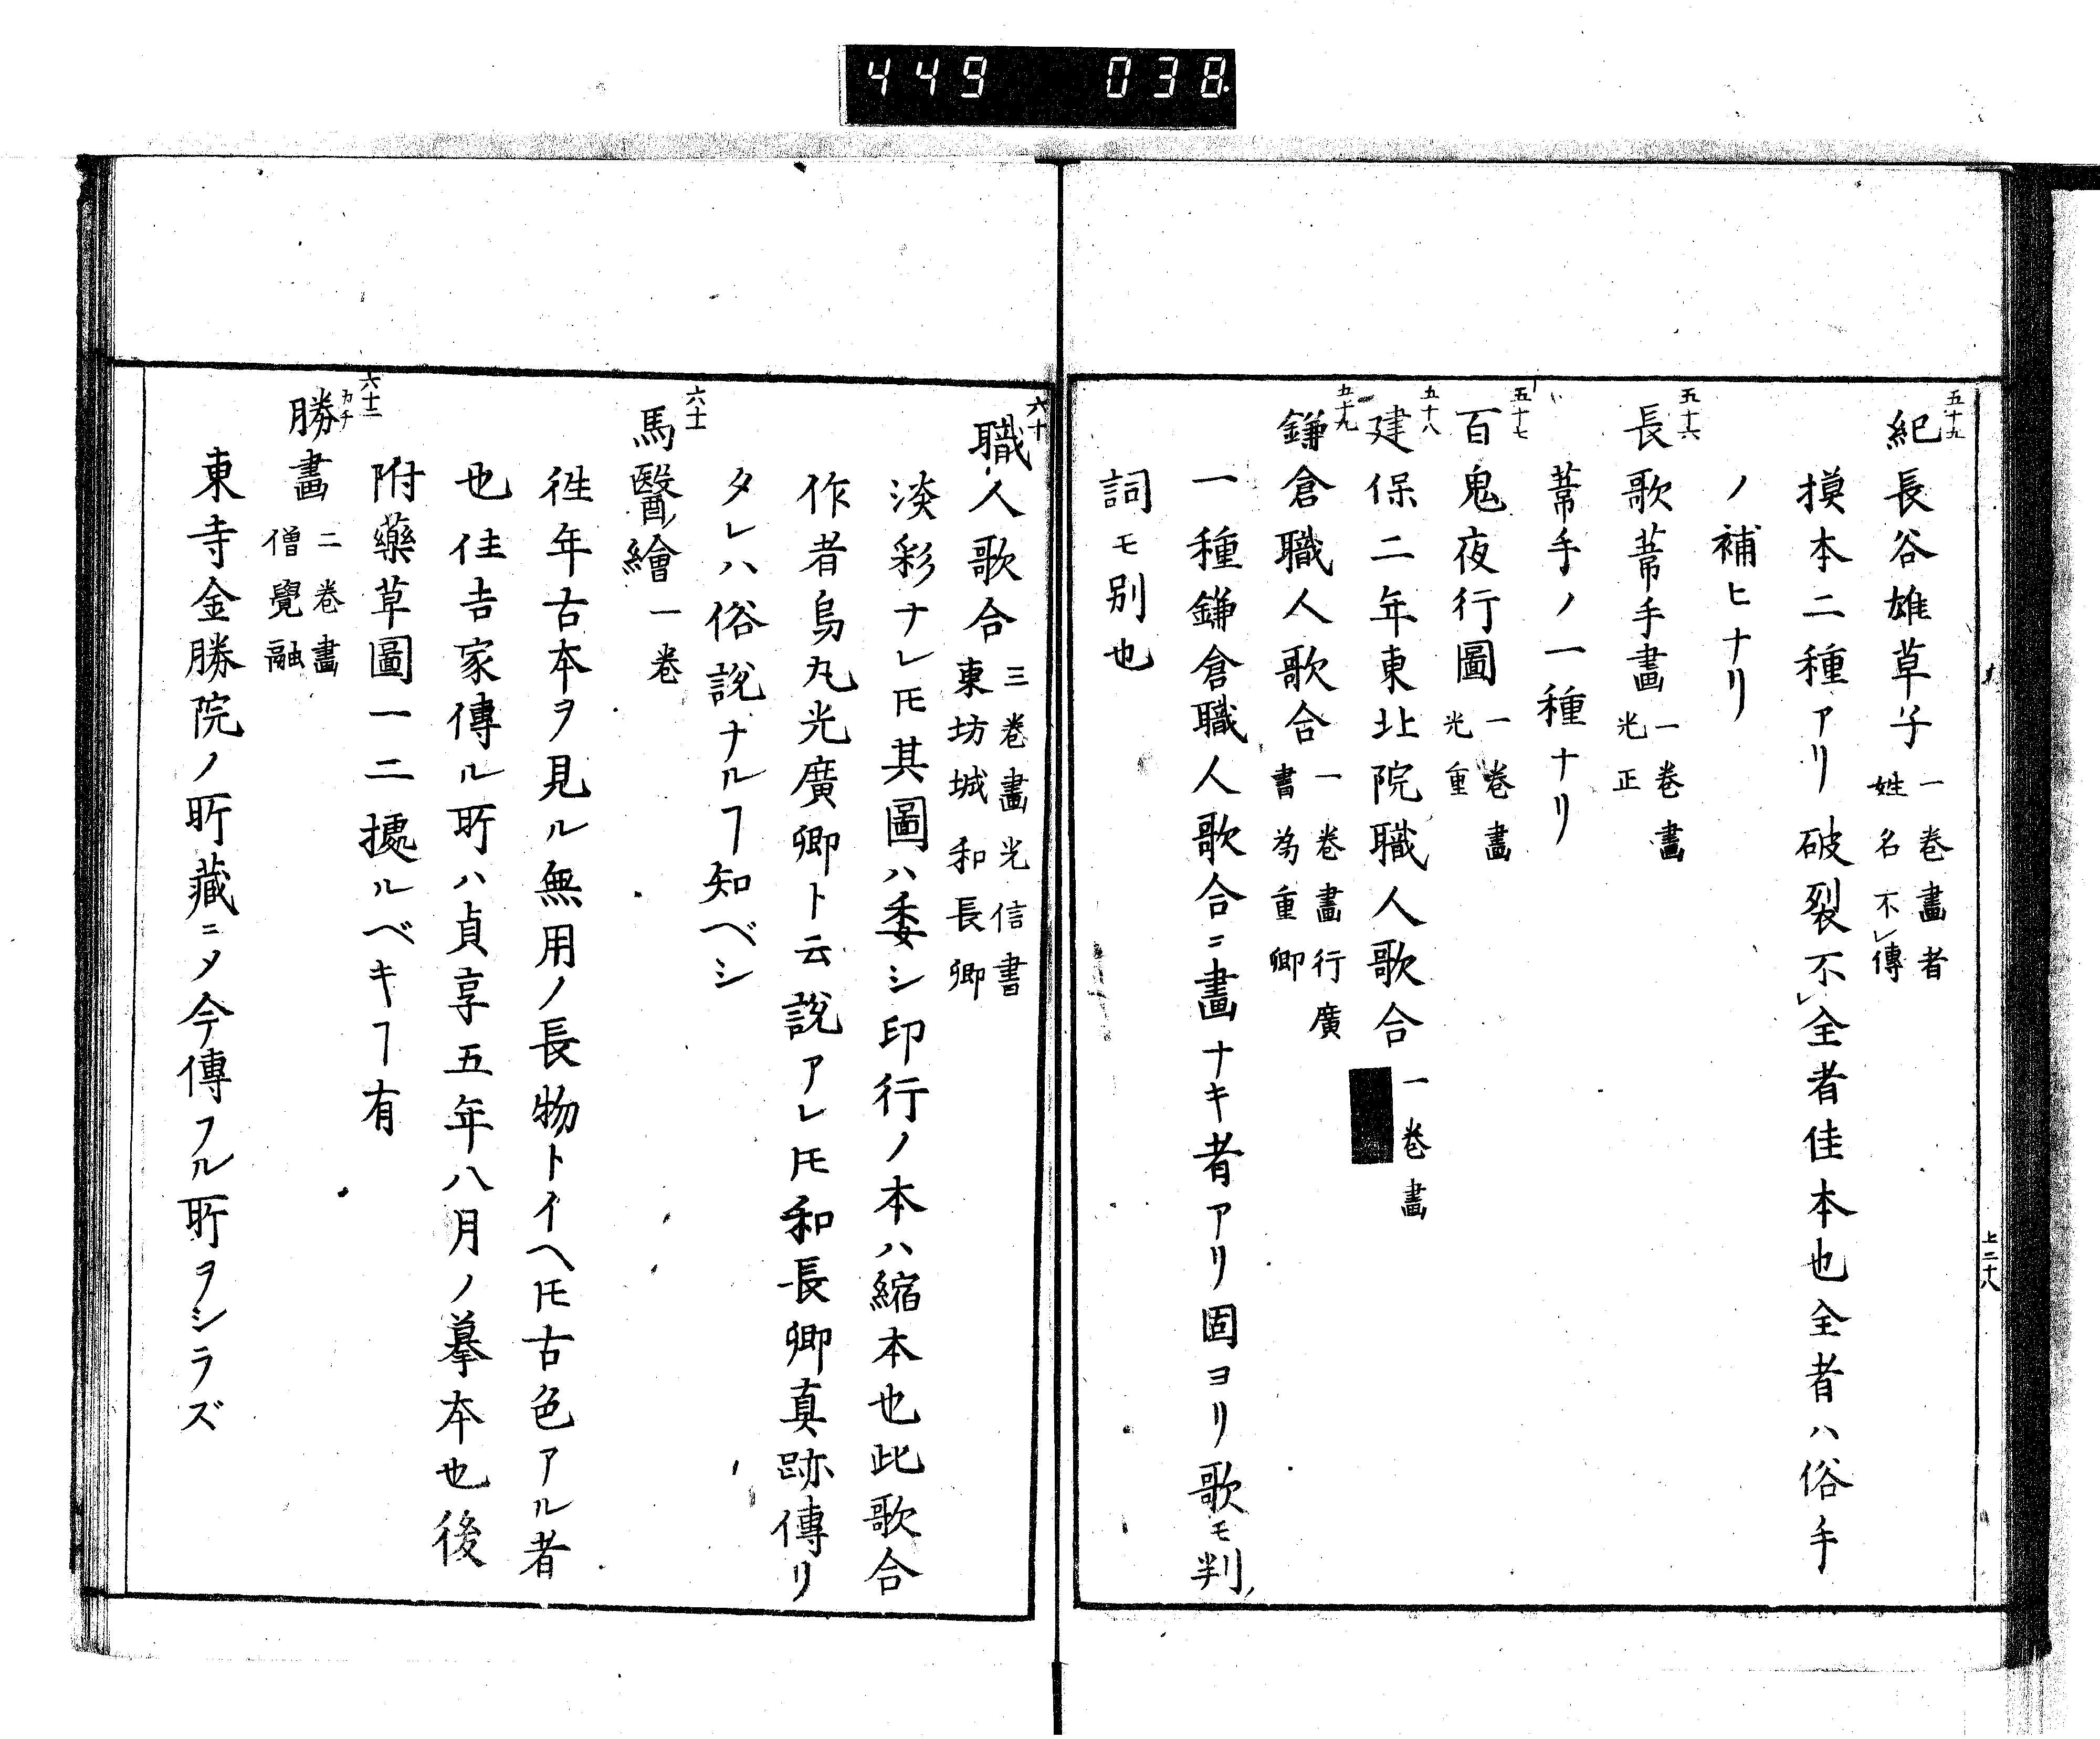 449 038
上二十八
五十九
紀長谷雄草子 一巻畫者
姓名不㆑傳
摸本二種アリ破裂不㆑全者佳本也全者ハ俗手
ノ補ヒナリ
五十六
長歌葦手畫 一巻畫
光正
葦手ノ一種ナリ
五十七
百鬼夜行圖 一巻畫
光重
五十八
建保二年東北院職人歌合 一巻畫
五十九
鎌倉職人歌合 一巻畫行廣
書為重卿
一種鎌倉職人歌合ニ畫ナキ者アリ固ヨリ歌モ判ノ
詞モ別也
六十
職人歌合 三巻畫光信書
東坊城和長卿
淡彩ナレ𪜈其圖ハ委シ印行ノ本ハ縮本也此歌合
作者烏丸光廣卿ト云説アレ𪜈和長卿真跡傳リ
タレハ俗説ナルヿ知ベシ
六十一
馬醫ノ繪一巻
徃年古本ヲ見ル無用ノ長物トイヘ𪜈古色アル者
也住吉家傳ル所ハ貞享五年八月ノ摹本也後
附藥草圖一二㨿ルベキヿ有
六十二
勝畫 二巻畫
僧覺融
カチ
東寺金勝院ノ所藏ニ乄今傳フル所ヲシラズ